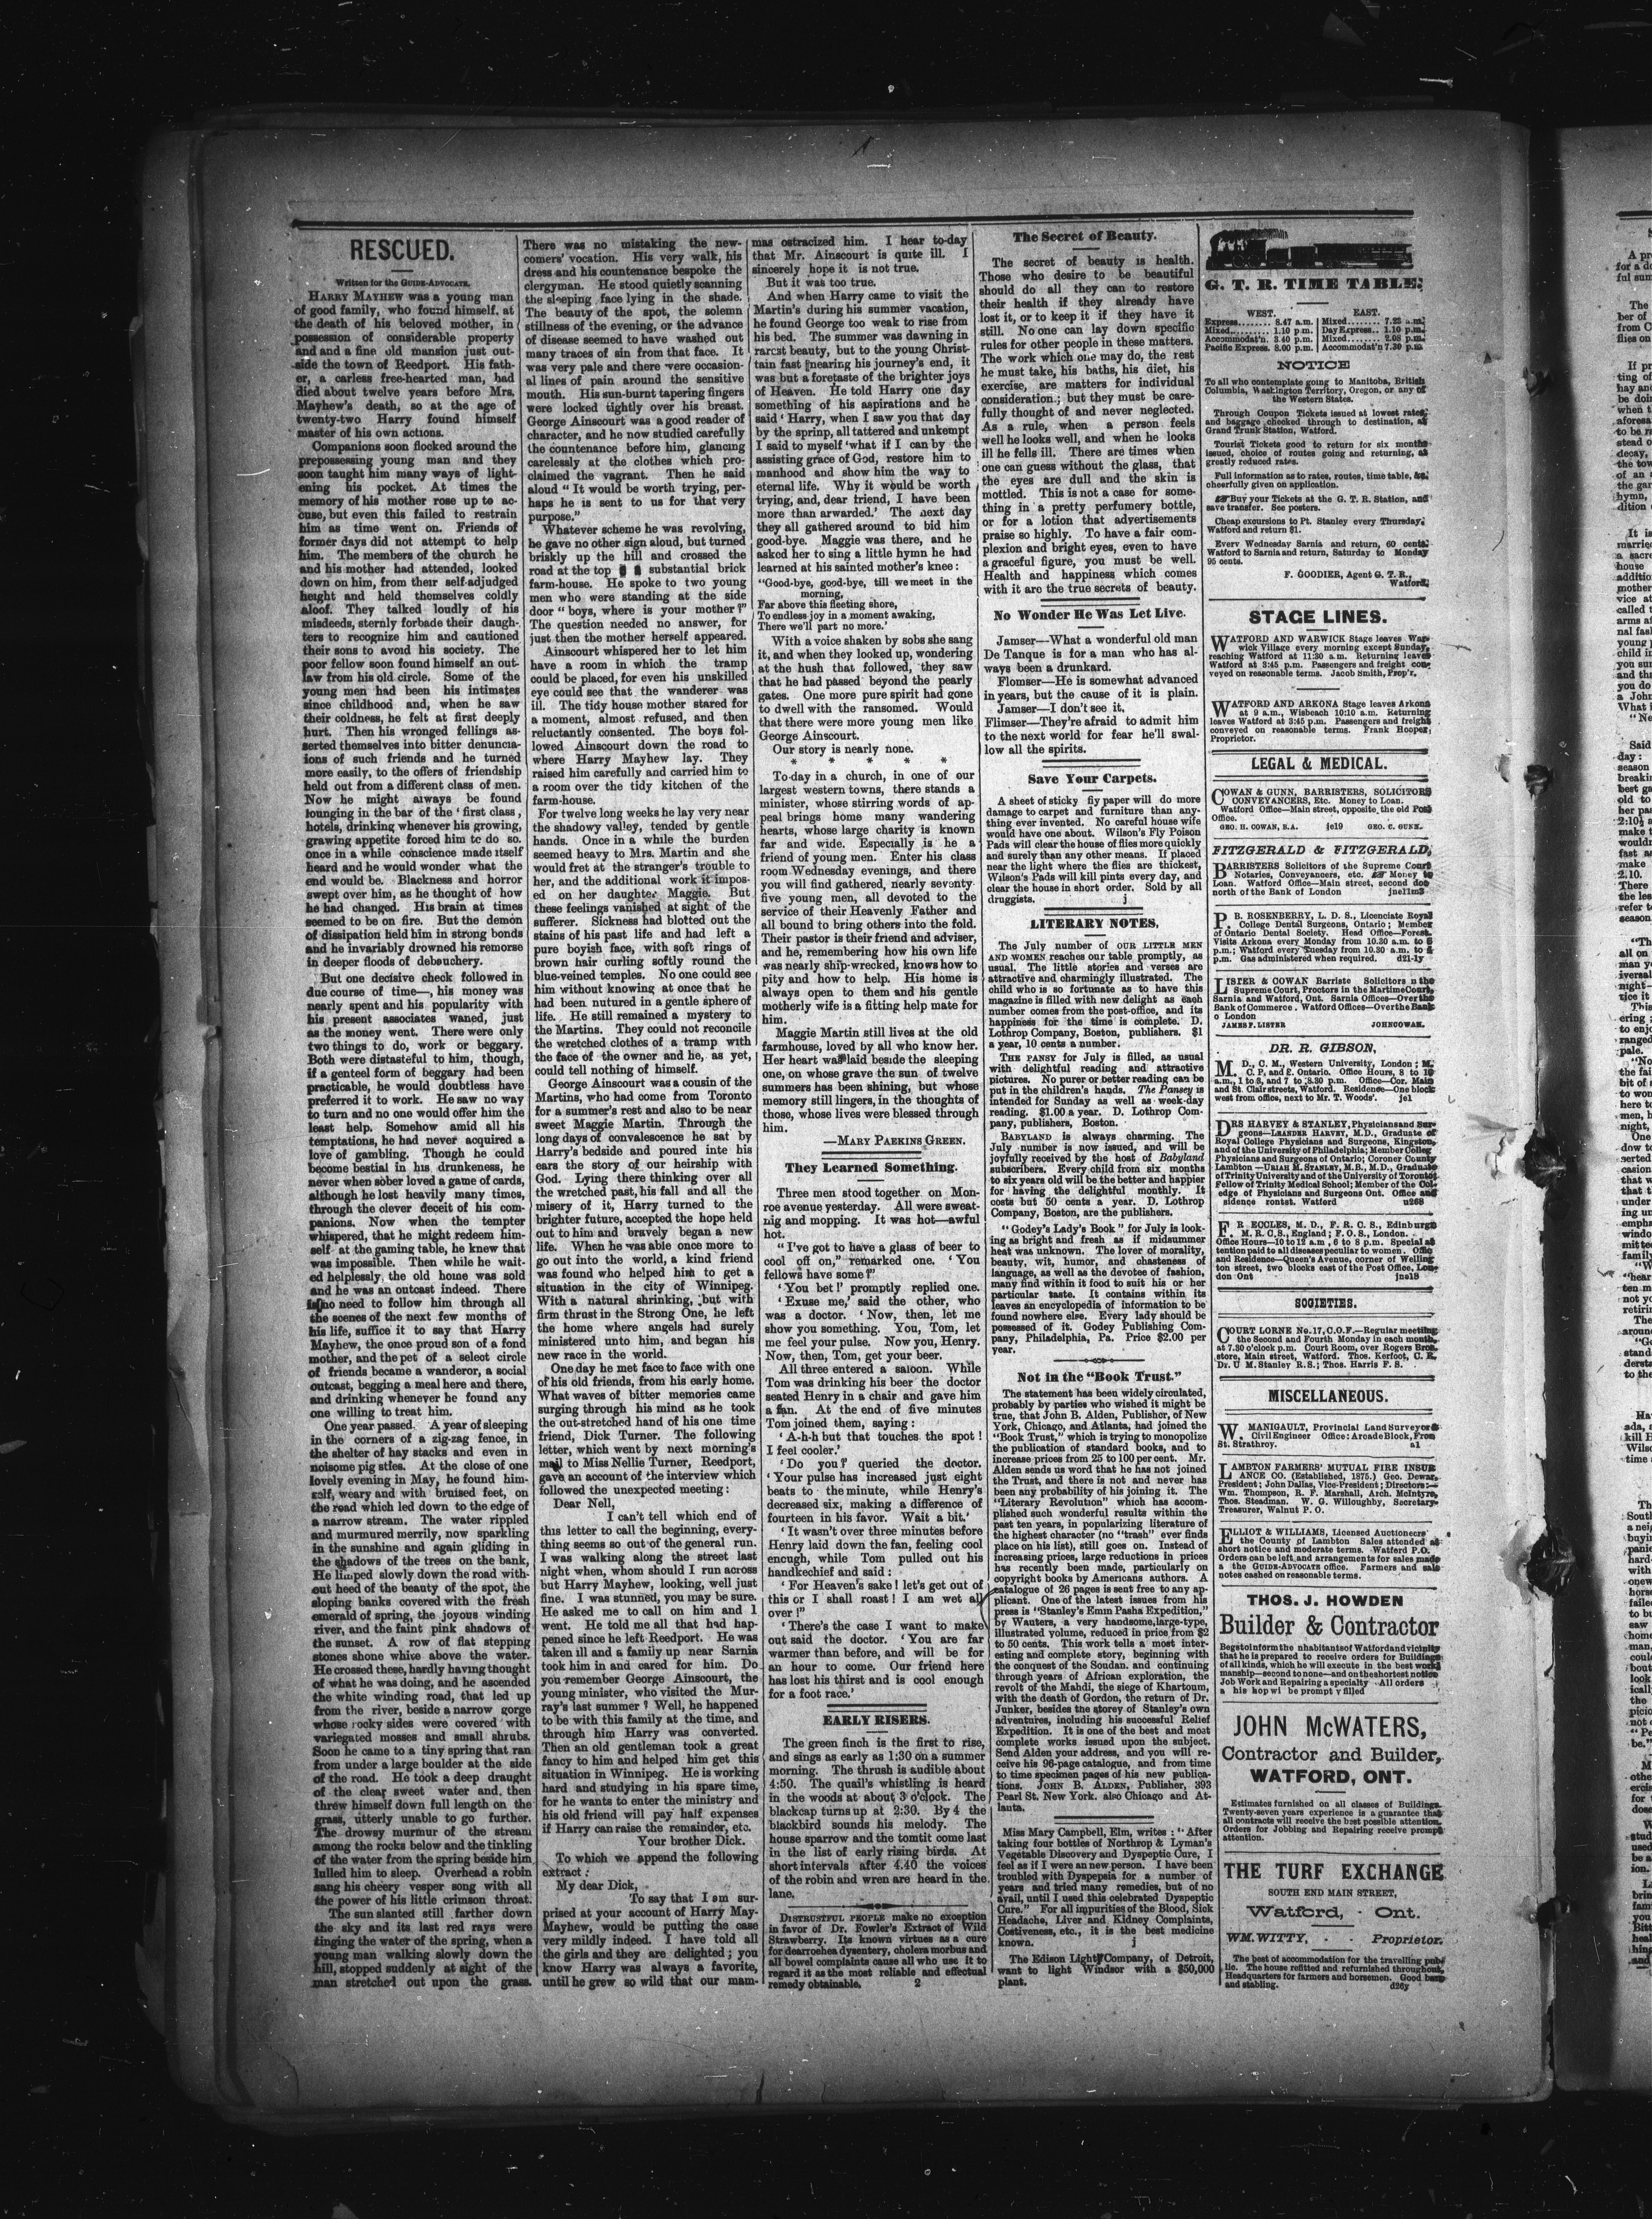 RESCUED.
Written for the GUIDE-ADVOCATE.
HARRY MAYHEW was a young man
of good family, who found himself, at
the death of his beloved mother, in
possession of considerable property
and and a fine old mansion just out-
side the town of Reedport. His fath-
er, a carless free-hearted man, had
died about twelve years before Mrs.
Mayhew's death, so at the age of
twenty-two Harry found himself
master of his own actions.
Companions soon flocked around the
prepossessing young man and they
soon taught him many ways of light-
ening his pocket. At times the
memory of his mother rose up to ac-
cuse, but even this failed to restrain
him as time went on. Friends of
former days did not attempt to help
him. The members of the church he
and his mother had attended, looked
down on him, from their self-adjudged
height and held themselves coldly
aloof. They talked loudly of his
misdeeds, sternly forbade their daugh-
ters to recognize him and cautioned
their sons to avoid his society. The
poor fellow soon found himself an out-
law from his old circle. Some of the
young men had been his intimates
since childhood and, when he saw
their coldness, he felt at first deeply
hurt. Then his wronged fellings as-
serted themselves into bitter denuncia-
ions of such friends and he turned
more easily, to the offers of friendship
held out from a different class of men.
Now he might always be found
lounging in the bar of the ' first class ,
hotels, drinking whenever his growing,
grawing appetite forced him to do so.
once in a while conscience made itself
heard and he would wonder what the
end would be. Blackness and horror
swept over him, as he thought of how
he had changed. His brain at times
seemed to be on fire. But the demon
of dissipation held him in strong bonds
and he invariably drowned his remorse
in deeper floods of debauchery.
But one decisive check followed in
due course of time—, his money was
nearly spent and his popularity with
his present associates waned, just
as the money went. There were only
two things to do, work or beggary.
Both were distasteful to him, though,
if a genteel form of beggary had been
practicable, he would doubtless have
preferred it to work. He saw no way
to turn and no one would offer him the
least help. Somehow amid all his
temptations, he had never acquired a
love of gambling. Though he could
become bestial in his drunkeness, he
never when sober loved a game of cards,
although he lost heavily many times,
through the clever deceit of his com-
panions. Now when the tempter
whispered, that he might redeem him-
self at the gaming table, he knew that
was impossible. Then while he wait-
ed helplessly, the old home was sold
and he was an outcast indeed. There
is no need to follow him through all
the scenes of the next few months of
his life, suffice it to say that Harry
Mayhew, the once proud son of a fond
mother, and the pet of a select circle
of friends became a wanderor, a social
outcast, begging a meal here and there,
and drinking whenever he found any
one willing to treat him.
One year passed. A year of sleeping
in the corners of a zig-zag fence, in
the shelter of hay stacks and even in
noisome pig sties. At the close of one
lovely evening in May, he found him-
self, weary and with bruised feet, on
the road which led down to the edge of
a narrow stream. The water rippled
and murmured merrily, now sparkling
in the sunshine and again gliding in
the shadows of the trees on the bank,
He limped slowly down the road with-
out heed of the beauty of the spot, the
sloping banks covered with the fresh
emerald of spring, the joyous winding
river, and the faint pink shadows of
the sunset. A row of flat stepping
stones shone whice above the water.
He crossed these, hardly having thought
of what he was doing, and he ascended
the white winding road, that led up
from the river, beside a narrow gorge
whose rocky sides were covered with
variegated mosses and small shrubs.
Soon he came to a tiny spring that ran
from under a large boulder at the side
of the road. He took a deep draught
of the clear sweet water and, then
threw himself down full length on the
grass, utterly unable to go further.
The drowsy murmur of the stream
among the rocks below and the tinkling
of the water from the spring beside him
lulled him to sleep. Overhead a robin
sang his cheery vesper song with all
the power of his little crimson throat.
The sun slanted still farther down
the sky and its last red rays were
tinging the water of the spring, when a
young man walking slowly down the
hill, stopped suddenly at sight of the
man stretched out upon the grass.
There was no mistaking the new-
comers' vocation. His very walk, his
dress and his countenance bespoke the
clergyman. He stood quietly scanning
the sleeping face lying in the shade.
The beauty of the spot, the solemn
stillness of the evening, or the advance
of disease seemed to have washed out
many traces of sin from that face. It
was very pale and there were occasion-
al lines of pain around the sensitive
mouth. His sun-burnt tapering fingers
were locked tightly over his breast.
George Ainscourt was a good reader of
character, and he now studied carefully
the countenance before him, glancing
carelessly at the clothes which pro-
claimed the vagrant. Then he said
aloud " It would be worth trying, per-
haps he is sent to us for that very
purpose."
Whatever scheme he was revolving,
he gave no other sign aloud, but turned
briskly up the hill and crossed the
road at the top substantial brick
farm-house. He spoke to two young
men who were standing at the side
door " boys, where is your mother ?"
The question needed no answer, for
just then the mother herself appeared.
Ainscourt whispered her to let him
have a room in which the tramp
could be placed, for even his unskilled
eye could see that the wanderer was
ill. The tidy house mother stared for
a moment, almost refused, and then
reluctantly consented. The boys fol-
lowed Ainscourt down the road to
where Harry Mayhew lay. They
raised him carefully and carried him to
a room over the tidy kitchen of the
farm-house.
For twelve long weeks he lay very near
the shadowy valley, tended by gentle
hands. Once in a while the burden
seemed heavy to Mrs. Martin and she
would fret at the stranger's trouble to
her, and the additional work it impos-
ed on her daughter Maggie. But
these feelings vanished at sight of the
sufferer. Sickness had blotted out the
stains of his past life and had left a
pure boyish face, with soft rings of
brown hair curling softly round the
blue-veined temples. No one could see
him without knowing at once that he
had been nutured in a gentle sphere of
life. He still remained a mystery to
the Martins. They could not reconcile
the wretched clothes of a tramp with
the face of the owner and he, as yet,
could tell nothing of himself.
George Ainscourt was a cousin of the
Martins, who had come from Toronto
for a summer's rest and also to be near
sweet Maggie Martin. Through the
long days of convalescence he sat by
Harry's bedside and poured into his
ears the story of our heirship with
God. Lying there thinking over all
the wretched past, his fall and all the
misery of it, Harry turned to the
brighter future, accepted the hope held
out to him and bravely began a new
life. When he was able once more to
go out into the world, a kind friend
was found who helped him to get a
situation in the city of Winnipeg.
With a natural shrinking, but with
firm thrust in the Strong One, he left
the home where angels had surely
ministered unto him, and began his
new race in the world.
One day he met face to face with one
of his old friends, from his early home.
What waves of bitter memories came
surging through his mind as he took
the out-stretched hand of his one time
friend, Dick Turner. The following
letter, which went by next morning's
mail to Miss Nellie Turner, Reedport,
gave an account of the interview which
followed the unexpected meeting:
Dear Nell,
I can't tell which end of
this letter to call the beginning, every-
thing seems so out of the general run.
I was walking along the street last
night when, whom should I run across
but Harry Mayhew, looking, well just
fine. I was stunned, you may be sure.
He asked me to call on him and I
went. He told me all that had hap-
pened since he left Reedport. He was
taken ill and a family up near Sarnia
took him in and cared for him. Do
you remember George Ainscourt, the
young minister, who visited the Mur-
ray's last summer ? Well, he happened
to be with this family at the time, and
through him Harry was converted.
Then an old gentleman took a great
fancy to him and helped him get this
situation in Winnipeg. He is working
hard and studying in his spare time,
for he wants to enter the ministry and
his old friend will pay half expenses
if Harry can raise the remainder, etc.
Your brother Dick.
To which we append the following
extract :
My dear Dick,
To say that I am sur-
prised at your account of Harry May-
Mayhew, would be putting the case
very mildly indeed. I have told all
the girls and they are delighted ; you
know Harry was always a favorite,
until he grew so wild that our mam-
mas ostracized him. I hear to-day
that Mr. Ainscourt is quite ill. I
sincerely hope it is not true.
But it was too true.
And when Harry came to visit the
Martin's during his summer vacation,
he found George too weak to rise from
his bed. The summer was dawning in
rarest beauty, but to the young Christ-
tain fast nearing his journey's end, it
was but a foretaste of the brighter joys
of Heaven. He told Harry one day
something of his aspirations and he
said ' Harry, when I saw you that day
by the sprinp, all tattered and unkempt
I said to myself 'what if I can by the
assisting grace of God, restore him to
manhood and show him the way to
eternal life. Why it would be worth
trying, and, dear friend, I have been
more than arwarded.' The next day
they all gathered around to bid him
good-bye. Maggie was there, and he
asked her to sing a little hymn he had
learned at his sainted mother's knee :
"Good-bye, good-bye, till we meet in the
morning,
Far above this fleeting shore,
To endless joy in a moment awaking,
There we'll part no more.'
With a voice shaken by sobs she sang
it, and when they looked up, wondering
at the hush that followed, they saw
that he had passed beyond the pearly
gates. One more pure spirit had gone
to dwell with the ransomed. Would
that there were more young men like
George Ainscourt.
Our story is nearly none.
* * * * *
To-day in a church, in one of our
largest western towns, there stands a
minister, whose stirring words of ap-
peal brings home many wandering
hearts, whose large charity is known
far and wide. Especially is he a
friend of young men. Enter his class
room Wednesday evenings, and there
you will find gathered, nearly seventy
five young men, all devoted to the
service of their Heavenly Father and
all bound to bring others into the fold.
Their pastor is their friend and adviser,
and he, remembering how his own life
was nearly ship-wrecked, knows how to
pity and how to help. His home is
always open to them and his gentle
motherly wife is a fitting help mate for
him.
Maggie Martin still lives at the old
farmhouse, loved by all who know her.
Her heart was laid beside the sleeping
one, on whose grave the sun of twelve
summers has been shining, but whose
memory still lingers, in the thoughts of
those, whose lives were blessed through
him.
—MARY PAEKINS GREEN.
They Learned Something.
Three men stood together on Mon-
roe avenue yesterday. All were sweat-
nig and mopping. It was hot—awful
hot.
" I've got to have a glass of beer to
cool off on," remarked one. ' You
fellows have some ?"
' You bet !' promptly replied one.
' Exuse me,' said the other, who
was a doctor. ' Now, then, let me
show you something. You, Tom, let
me feel your pulse. Now you, Henry.
Now, then, Tom, get your beer.
All three entered a saloon. While
Tom was drinking his beer the doctor
seated Henry in a chair and gave him
a fan. At the end of five minutes
Tom joined them, saying :
' A-h-h but that touches the spot !
I feel cooler.'
' Do you ?' queried the doctor.
' Your pulse has increased just eight
beats to the minute, while Henry's
decreased six, making a difference of
fourteen in his favor. Wait a bit.'
' It wasn't over three minutes before
Henry laid down the fan, feeling cool
enough, while Tom pulled out his
handkechief and said :
' For Heaven's sake ! let's get out of
this or I shall roast ! I am wet all
over !"
' There's the case I want to make
out said the doctor. ' You are far
warmer than before, and will be for
an hour to come. Our friend here
has lost his thirst and is cool enough
for a foot race.'
EARLY RISERS.
The green finch is the first to rise,
and sings as early as 1:30 on a summer
morning. The thrush is audible about
4:50. The quail's whistling is heard
in the woods at about 3 o'clock. The
blackcap turns up at 2:30. By 4 the
blackbird sounds his melody. The
house sparrow and the tomtit come last
in the list of early rising birds. At
short intervals after 4.40 the voices
of the robin and wren are heard in the
lane.
DISTRUSTFUL PEOPLE make no exception
in favor of Dr. Fowler's Extract of Wild
Strawberry. Its known virtues as a cure
for diarroehea dysentery, cholera morbus and
all bowel complaints cause all who use it to
regard it as the most reliable and effectual
remedy obtainable. 2
The Secret of Beauty.
The secret of beauty is health.
Those who desire to be beautiful
should do all they can to restore
their health if they already have
lost it, or to keep it if they have it
still. No one can lay down specific
rules for other people in these matters.
The work which one may do, the rest
he must take, his baths, his diet, his
exercise, are matters for individual
consideration ; but they must be care-
fully thought of and never neglected.
As a rule, when a person feels
well he looks well, and when he looks
ill he fells ill. There are times when
one can guess without the glass, that
the eyes are dull and the skin is
mottled. This is not a case for some-
thing in a pretty perfumery bottle,
or for a lotion that advertisements
praise so highly. To have a fair com-
plexion and bright eyes, even to have
a graceful figure, you must be well.
Health and happiness which comes
with it are the true secrets of beauty.
No Wonder He Was Let Live.
Jamser—What a wonderful old man
De Tanque is for a man who has al-
ways been a drunkard.
Flomser—He is somewhat advanced
in years, but the cause of it is plain.
Jamser—I don't see it.
Flimser—They're afraid to admit him
to the next world for fear he'll swal-
low all the spirits.
Save Your Carpets.
A sheet of sticky fiy paper will do more
damage to carpet and furniture than any-
thing ever invented. No careful house wife
would have one about. Wilson's Fly Poison
Pads will clear the house of flies more quickly
and surely than any other means. If placed
near the light where the flies are thickest,
Wilson's Pads will kill pints every day, and
clear the house in short order. Sold by all
druggists. j
LITERARY NOTES.
The July number of OUR LITTLE MEN
AND WOMEN reaches our table promptly, as
usual. The little stories and verses are
attractive and charmingly illustrated. The
child who is so fortunate as to have this
magazine is filled with new delight as each
number comes from the post-office, and its
happiness for the time is complete. D.
Lothrop Company, Boston, publishers. $1
a year, 10 cents a number.
THE PANSY for July is filled, as usual
with delightful reading and attractive
pictures. No purer or better reading can be
put in the children's hands. The Pansey is
intended for Sunday as well as week-day
reading. $1.00 a year. D. Lothrop Com-
pany, publishers, Boston.
BABYLAND is always charming. The
July number is now issued, and will be
joyfully received by the host of Babyland
subscribers. Every child from six months
to six years old will be the better and happier
for having the delightful monthly. It
costs but 50 cents a year. D. Lothrop
Company, Boston, are the publishers.
" Godey's Lady's Book " for July is look-
ing as bright and fresh as if midsummer
heat was unknown. The lover of morality,
beauty, wit, humor, and chasteness of
language, as well as the devotee of fashion,
many find within it food to suit his or her
particular taste. It contains within its
leaves an encyclopedia of information to be
found nowhere else. Every lady should be
possessed of it. Godey Publishing Com-
pany, Philadelphia, Pa. Price $2.00 per
year.
Not in the "Book Trust."
The statement has been widely circulated,
probably by parties who wished it might be
true, that John B. Alden, Publisher, of New
York, Chicago, and Atlanta, had joined the
"Book Trust," which is trying to monopolize
the publication of standard books, and to
increase prices from 25 to 100 per cent. Mr.
Alden sends us word that he has not joined
the Trust, and there is not and never has
been any probability of his joining it. The
"Literary Revolution" which has accom-
plished such wonderful results within the
past ten years, in popularizing literature of
the highest character (no "trash" ever finds
place on his list), still goes on. Instead of
increasing prices, large reductions in prices
has recently been made, particularly on
copyright books by Americans authors. A
catalogue of 26 pages is sent free to any ap-
plicant. One of the latest issues from his
press is "Stanley's Emin Pasha Expedition,"
by Wauters, a very handsome, large-type,
illustrated volume, reduced in price from $2
to 50 cents. This work tells a most inter-
esting and complete story, beginning with
the conquest of the Soudan. and continuing
through years of African exploration, the
revolt of the Mahdi, the siege of Khartoum,
with the death of Gordon, the return of Dr.
Junker, besides the storey of Stanley's own
adventures, including his successful Relief
Expedition. It is one of the best and most
complete works issued upon the subject.
Send Alden your address, and you will re-
ceive his 96-page catalogue, and from time
to time specimen pages of his new publica-
tions. JOHN B. ALDEN, Publisher, 393
Pearl St. New York. also Chicago and At-
lanta.
Miss Mary Campbell, Elm, writes : " After
taking four bottles of Northrop & Lyman's
Vegetable Discovery and Dyspeptic Cure, I
feel as if I were an new person. I have been
troubled with Dyspepsia for a number of
years and tried many remedies, but of no
avail, until I used this celebrated Dyspeptic
Cure." For all impurities of the Blood, Sick
Headache, Liver and Kidney Complaints,
Costiveness, etc., it is the best medicine
known. j
The Edison Light Company, of Detroit,
want to light Windsor with a $50,000
plant.
G. T. R. TIME TABLE.
WEST. EAST.
Express........ 8.47 a.m. | Mixed........ 7.22 a.m.
Mixed......... 1.10 p.m. | Day Express.. 1.10 p.m.
Accommodat'n. 3.40 p.m. | Mixed........ 2.08 p.m.
Pacific Express. 8.00 p.m. | Accommodat'n 7.30 p.m.
NOTICE
To all who contemplate going to Manitoba, British
Columbia, Washington Territory, Oregon, or any of
the Western States.
Through Coupon Tickets issued at lowest rates,
and baggage checked through to destination, at
Grand Trunk Station, Watford.
Tourist Tickets good to return for six months
issued, choice of routes going and returning, at
greatly reduced rates.
Full information as to rates, routes, time table, &c.
cheerfully given on application.
Buy your Tickets at the G. T. R. Station, and
save transfer. See posters.
Cheap excursions to Pt. Stanley every Thursday.
Watford and return $1.
Every Wednesday Sarnia and return, 60 cents.
Watford to Sarnia and return, Saturday to Monday
95 cents.
F. GOODIER, Agent G. T. R.,
Watford.
STAGE LINES.
WATFORD AND WARWICK Stage leaves War-
wick Village every morning except Sunday,
reaching Watford at 11:30 a.m. Returning leaves
Watford at 3:45 p.m. Passengers and freight con-
veyed on reasonable terms. Jacob Smith, Prop'r.
WATFORD AND ARKONA Stage leaves Arkona
at 9 a.m., Wisbeach 10:10 a.m. Returning
leaves Watford at 3:45 p.m. Passengers and freight
conveyed on reasonable terms. Frank Hooper,
Proprietor.
LEGAL & MEDICAL.
COWAN & GUNN, BARRISTERS, SOLICITORS
CONVEYANCERS, Etc. Money to Loan.
Watford Office—Main street, opposite, the old Post
Office.
GEO. H. COWAN, B.A. je19 GEO. C. GUNN.
FITZGERALD & FITZGERALD,
BARRISTERS Solicitors of the Supreme Court
Notaries, Conveyancers, etc. Money to
Loan. Watford Office—Main street, second doo
north of the Bank of London jne11m3
P. B. ROSENBERRY, L. D. S., Licenciate Royal
College Dental Surgeons, Ontario ; Member
of Ontario Dental Society. Head Office—Forest.
Visits Arkona every Monday from 10.30 a.m. to 5
p.m.; Watford every Tuesday from 10.30 a.m. to 4
p.m. Gas administered when required. d21-1y
LISTER & COWAN Barriste Solicitors n the
Supreme Court, Proctors in the Martime Court,
Sarnia and Watford, Ont. Sarnia Offices—Over the
Bank of Commerce . Watford Offices—Over the Bank
o London
JAMES F. LISTER JOHN COWAN.
DR. R. GIBSON,
M. D., C. M., Western University, London ; M.
C. P. and S. Ontario. Office Hours, 8 to 10
a.m., 1 to 3, and 7 to 8.30 p.m. Office—Cor. Main
and St. Clair streets, Watford. Residence—One block
west from office, next to Mr. T. Woods'. je1
DRS HARVEY & STANLEY, Physicians and Sur-
geons—LEANDER HARVEY, M.D., Graduate of
Royal College Physicians and Surgeons, Kingston,
and of the University of Philadelphia; Member Colleg
Physicians and Surgeons of Ontario; Coroner County
Lambton —URIAH M. STANLEY, M.B., M.D., Graduate
of Trinity University and of the University of Toronto;
Fellow of Trinity Medical School; Member of the Col-
edge of Physicians and Surgeons Ont. Office and
sidence rontst. Watford n268
F. R ECCLES, M. D., F. R. C. S., Edinburgh
M. R. C. S., England ; F. O. S., London. .
Office Hours—10 to 12 a.m , 6 to 8 p.m. Special at
tention paid to all diseases peculiar to women. Offic
and Residence—Queen's Avenue, corner of Welling
ton street, two blocks east of the Post Office, Lon-
don Ont jne18
SOCIETIES.
COURT LORNE No. 17, C.O.F.—Regular meeting
the Second and Fourth Monday in each month,
at 7.30 o'clock p.m. Court Room, over Rogers Bros.
store, Main street, Watford. Thos. Kerfoot, C. R.
Dr. U M. Stanley R.S.; Thos. Harris F. S.
MISCELLANEOUS.
W. MANIGAULT, Provincial Land Surveyor &
Civil Engineer Office: Arcade Block, Fron
St. Strathroy. a1
LAMBTON FARMERS' MUTUAL FIRE INSUR
ANCE CO. (Established, 1875.) Geo. Dewar,
President ; John Dallas, Vice-President ; Directors:—
Wm. Thompson, R. F. Marshall, Arch. McIntyre,
Thos. Steadman. W. G. Willoughby, Secretary-
Treasurer, Walnut P. O.
ELLIOT & WILLIAMS, Licensed Auctioneers
the County of Lambton Sales attended at
short notice and moderate terms. Watford P.O.
Orders can be left and arrangements for sales made
a the GUIDE-ADVOCATE office. Farmers and sale
notes cashed on reasonable terms.
THOS. J. HOWDEN
Builder & Contractor
Begs to inform the nhabitants of Watford and vicinity
that he is prepared to receive orders for Buildings
of all kinds, which he will execute in the best work
manship—second to none—and on the shortest notice
Job Work and Repairing a specialty All orders
a his hop wi be prompt y filled
JOHN McWATERS,
Contractor and Builder,
WATFORD, ONT.
Estimates furnished on all classes of Buildings.
Twenty-seven years experience is a guarantee that
all contracts will receive the best possible attention.
Orders for Jobbing and Repairing receive prompt
attention.
THE TURF EXCHANGE
SOUTH END MAIN STREET,
Watford, - Ont.
WM. WITTY, - - Proprietor.
The best of accommodation for the travelling pub-
lic. The house refitted and refurnished throughout.
Headquarters for farmers and horsemen. Good barn
and stabling. d26y